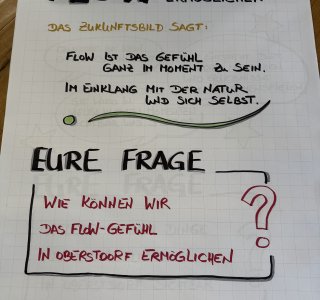 ERMÖGLICHEN
DAS ZUKUNFTSBILD SAGT:
FLOW IST DAS GEFÜHL
GANZ IM MOMENT ZU SEIN.
IM EINKLANG MIT DER NATUR
UND SICH SELBST.
EURE FRAGE
WIE KÖNNEN WIR
DAS FLOW-GEFÜHL
IN OBERSTDORF ERMÖGLICHEN
?